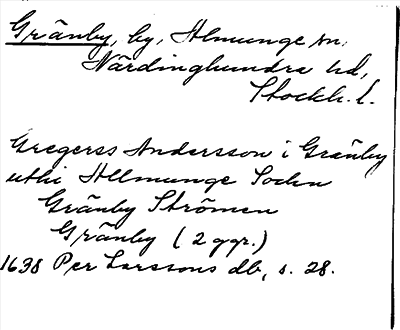 Gränby, by, Almunge sn,
Närdinghundra hd,
Stockh. l.
Gregerss Andersson i Gränby
uthi Allmunge Sochn
Gränby Strömen
Gränby (2 ggr.)
1638 Per Larssons db, s. 28.